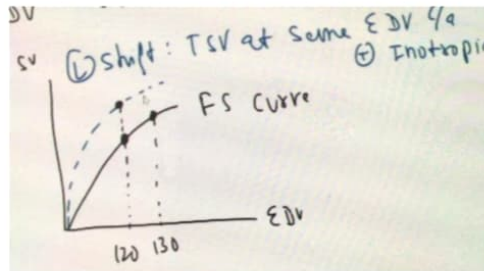 DV
Ⓛ Shift: ↑SV at same EDV c/a
⊕ Inotropi
SV
FS Curve
EDV
120 130